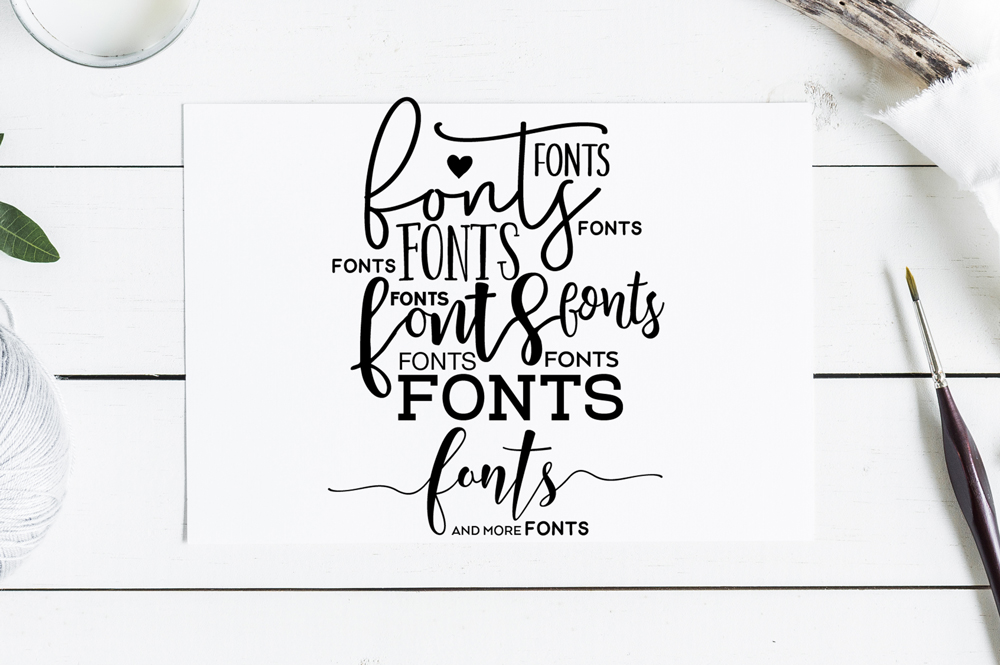 fonts
FONTS
FONTS
FONTS
FONTS
FONTS
fonts
fonts
FONTS
FONTS
FONTS
fonts
AND MORE FONTS